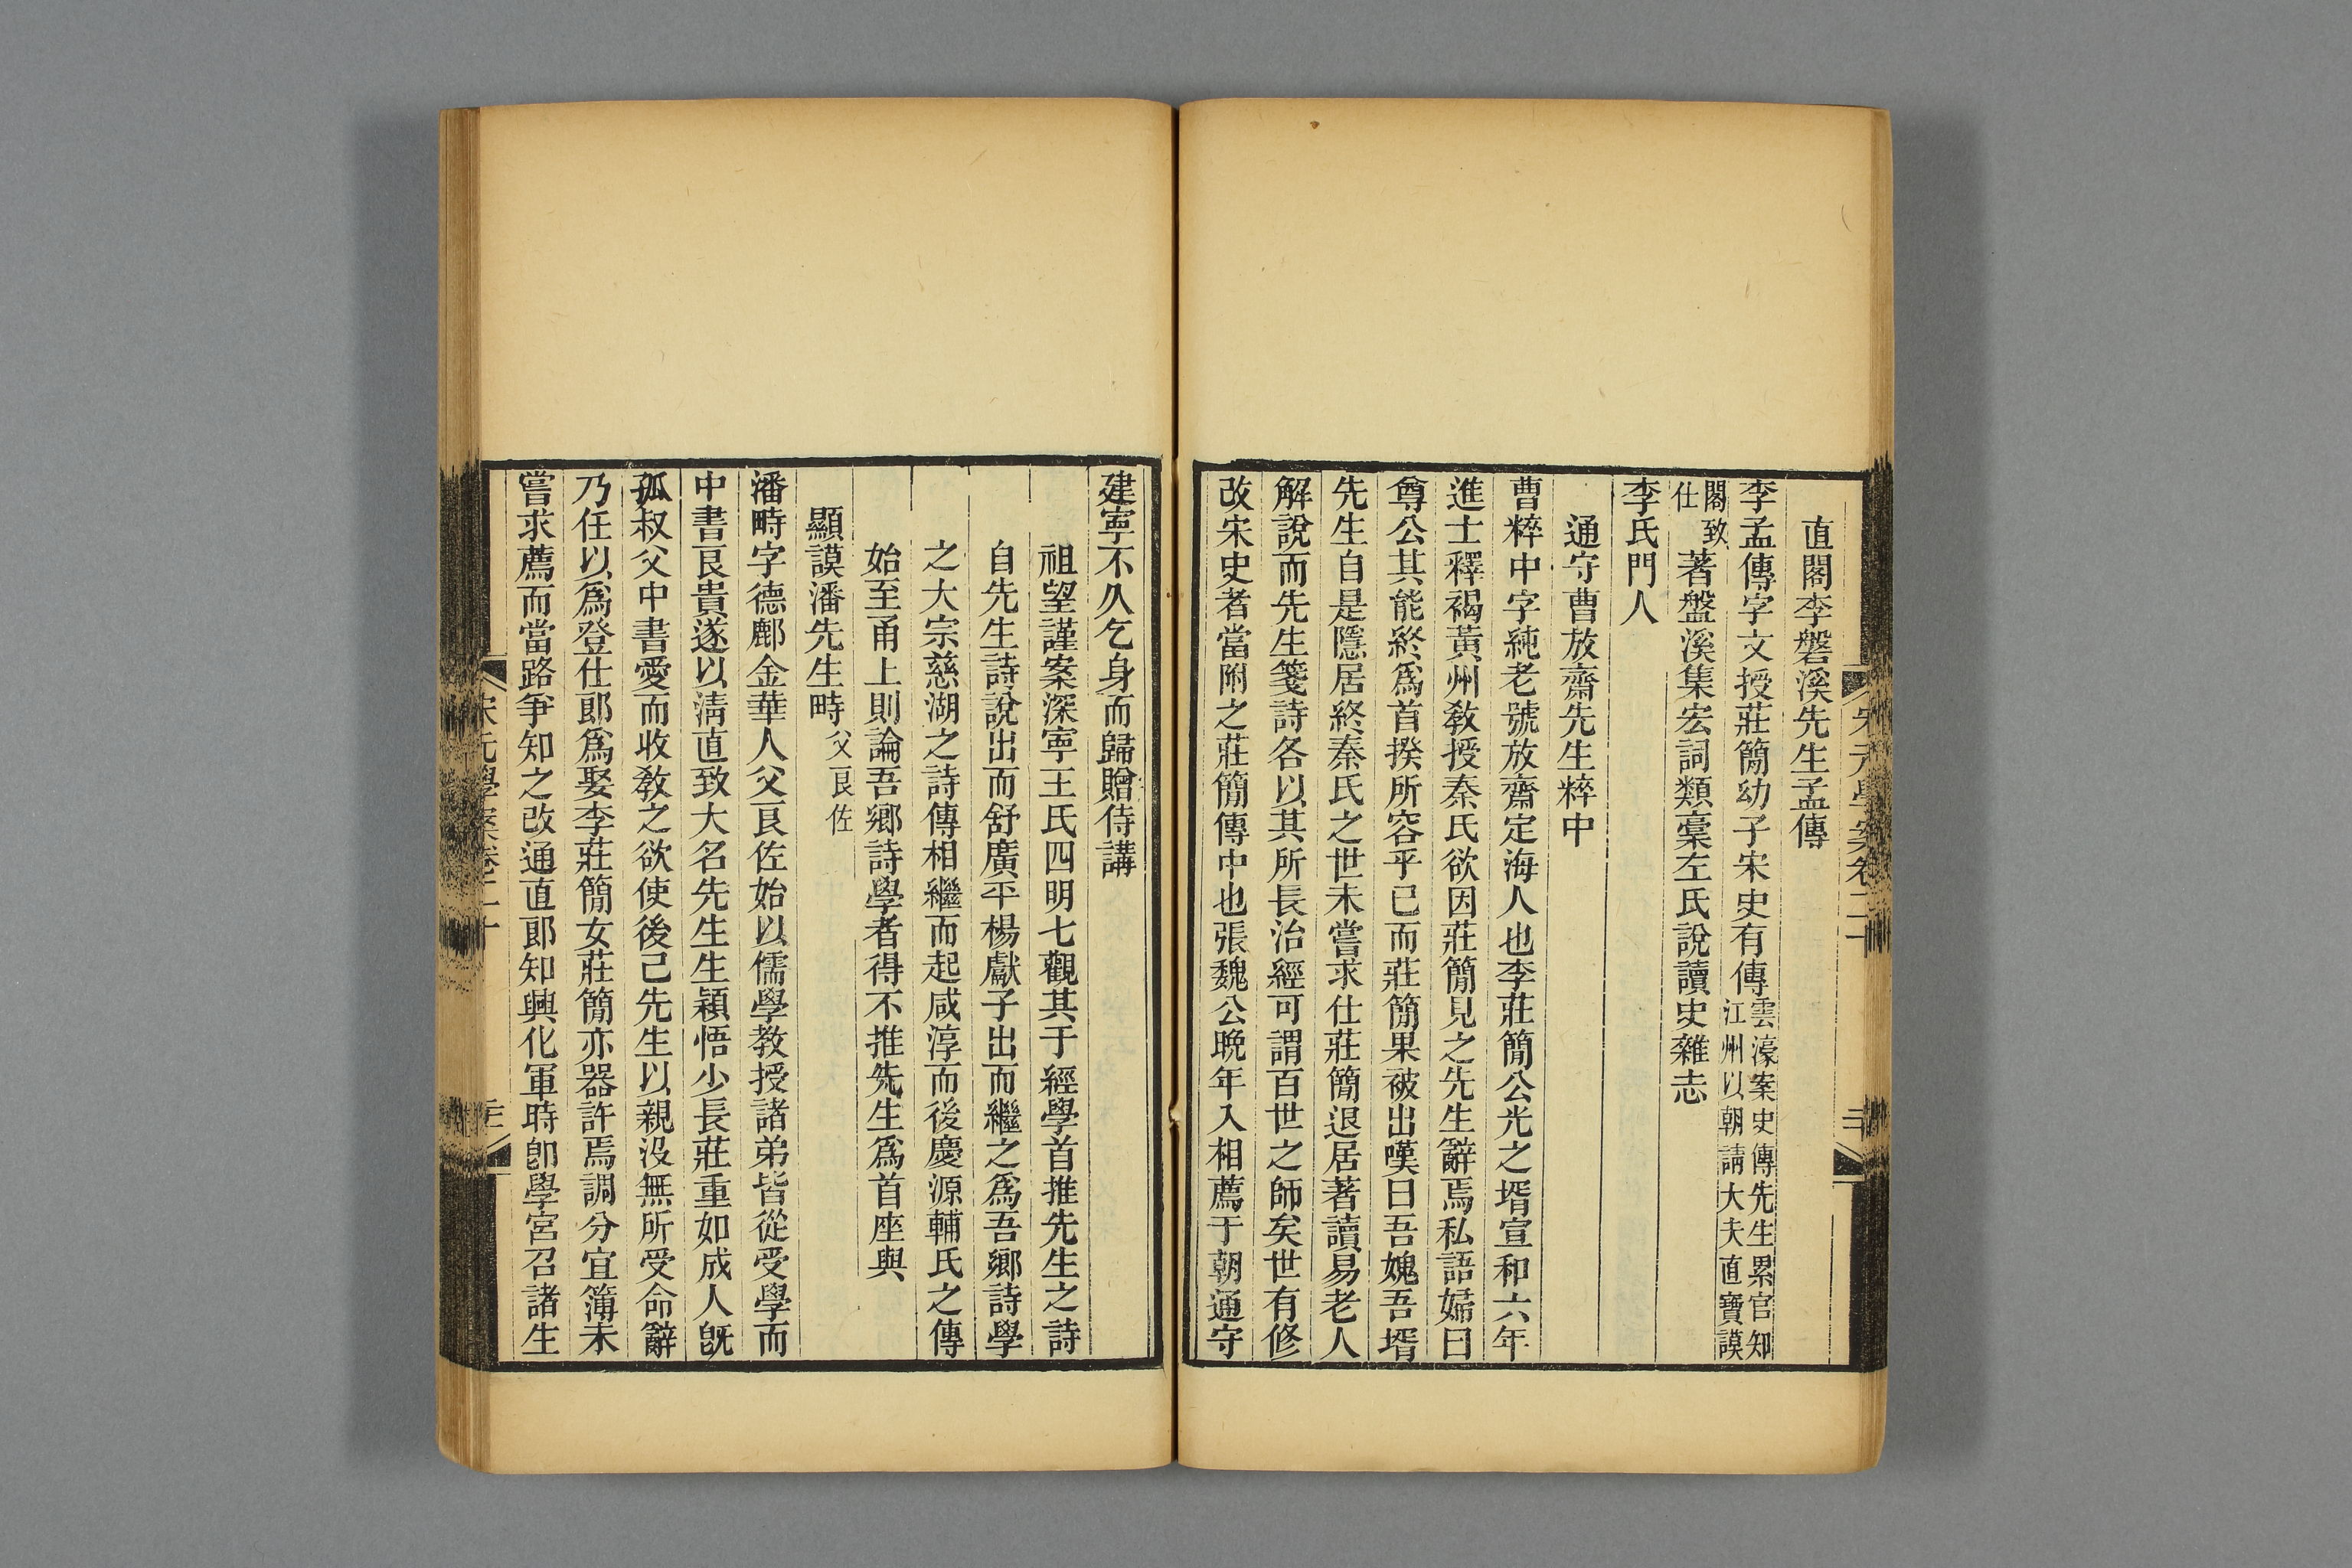 直閣李磐溪先生孟傳
李孟傳字文授莊簡幼子宋史有傳雲濠案史傳先生累官知
江州以朝請大夫直寶謨
閣致
仕
著盤溪集宏詞類稾左氏說讀史雜志
李氏門人
通守曹放齋先生粹中
曹粹中字純老號放齋定海人也李莊簡公光之壻宣和六年
進士釋褐黃州敎授秦氏欲因莊簡見之先生辭焉私語婦曰
尊公其能終爲首揆所容乎已而莊簡果被出嘆曰吾媿吾壻
先生自是隱居終秦氏之世未嘗求仕莊簡退居著讀易老人
解說而先生箋詩各以其所長治經可謂百世之師矣世有修
改宋史者當附之莊簡傳中也張魏公晚年入相薦于朝通守
建寧不久乞身而歸贈侍講
祖望謹案深寧王氏四明七觀其于經學首推先生之詩
自先生詩說出而舒廣平楊獻子出而繼之爲吾鄉詩學
之大宗慈湖之詩傳相繼而起咸淳而後慶源輔氏之傳
始至甬上則論吾鄉詩學者得不推先生爲首座與
顯謨潘先生畤父良佐
潘畤字德鄜金華人父良佐始以儒學教授諸弟皆從受學而
中書良貴遂以淸直致大名先生生穎悟少長莊重如成人旣
孤叔父中書愛而收敎之欲使後己先生以親沒無所受命辭
乃任以爲登仕郞爲娶李莊簡女莊簡亦器許焉調分宜簿未
嘗求薦而當路爭知之改通直郞知興化軍時卽學宮召諸生
宋元學案卷二十